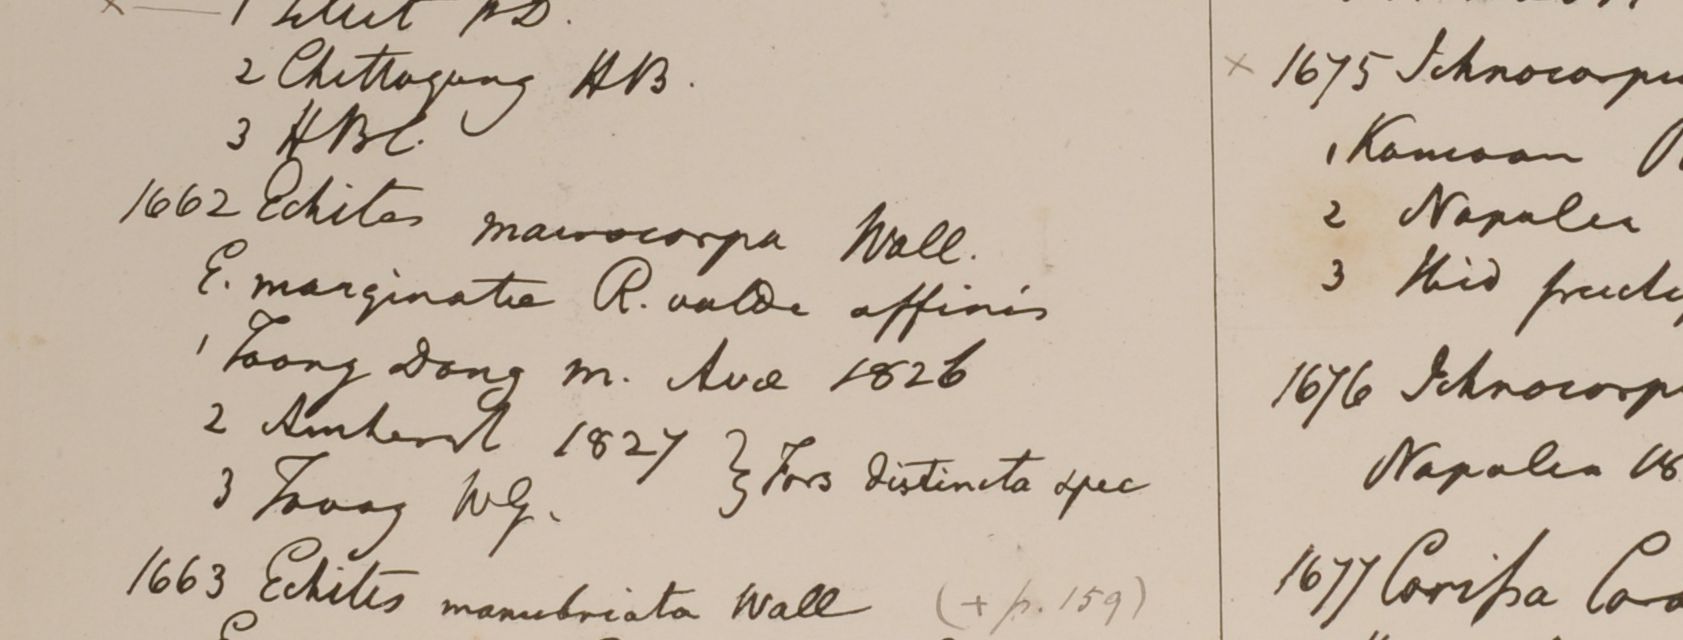 1 Silhet FD.
2 Chittagung HB.
3 HBC.
1662 Echites macrocarpa Wall.
E. marginatae R. valde affinis
1 Toong Dong m. Ava 1826
2 Amherst 1827
3 Tavoy WG. } Fors distincta spec
1663 Echites manubriata Wall (+ p. 159)
× 1675 Ichnocarpu
1 Kamaon
2 Napalia
3 Ibid fructi
1676 Ichnocarp
Napalia 18
1677 Carissa Cara